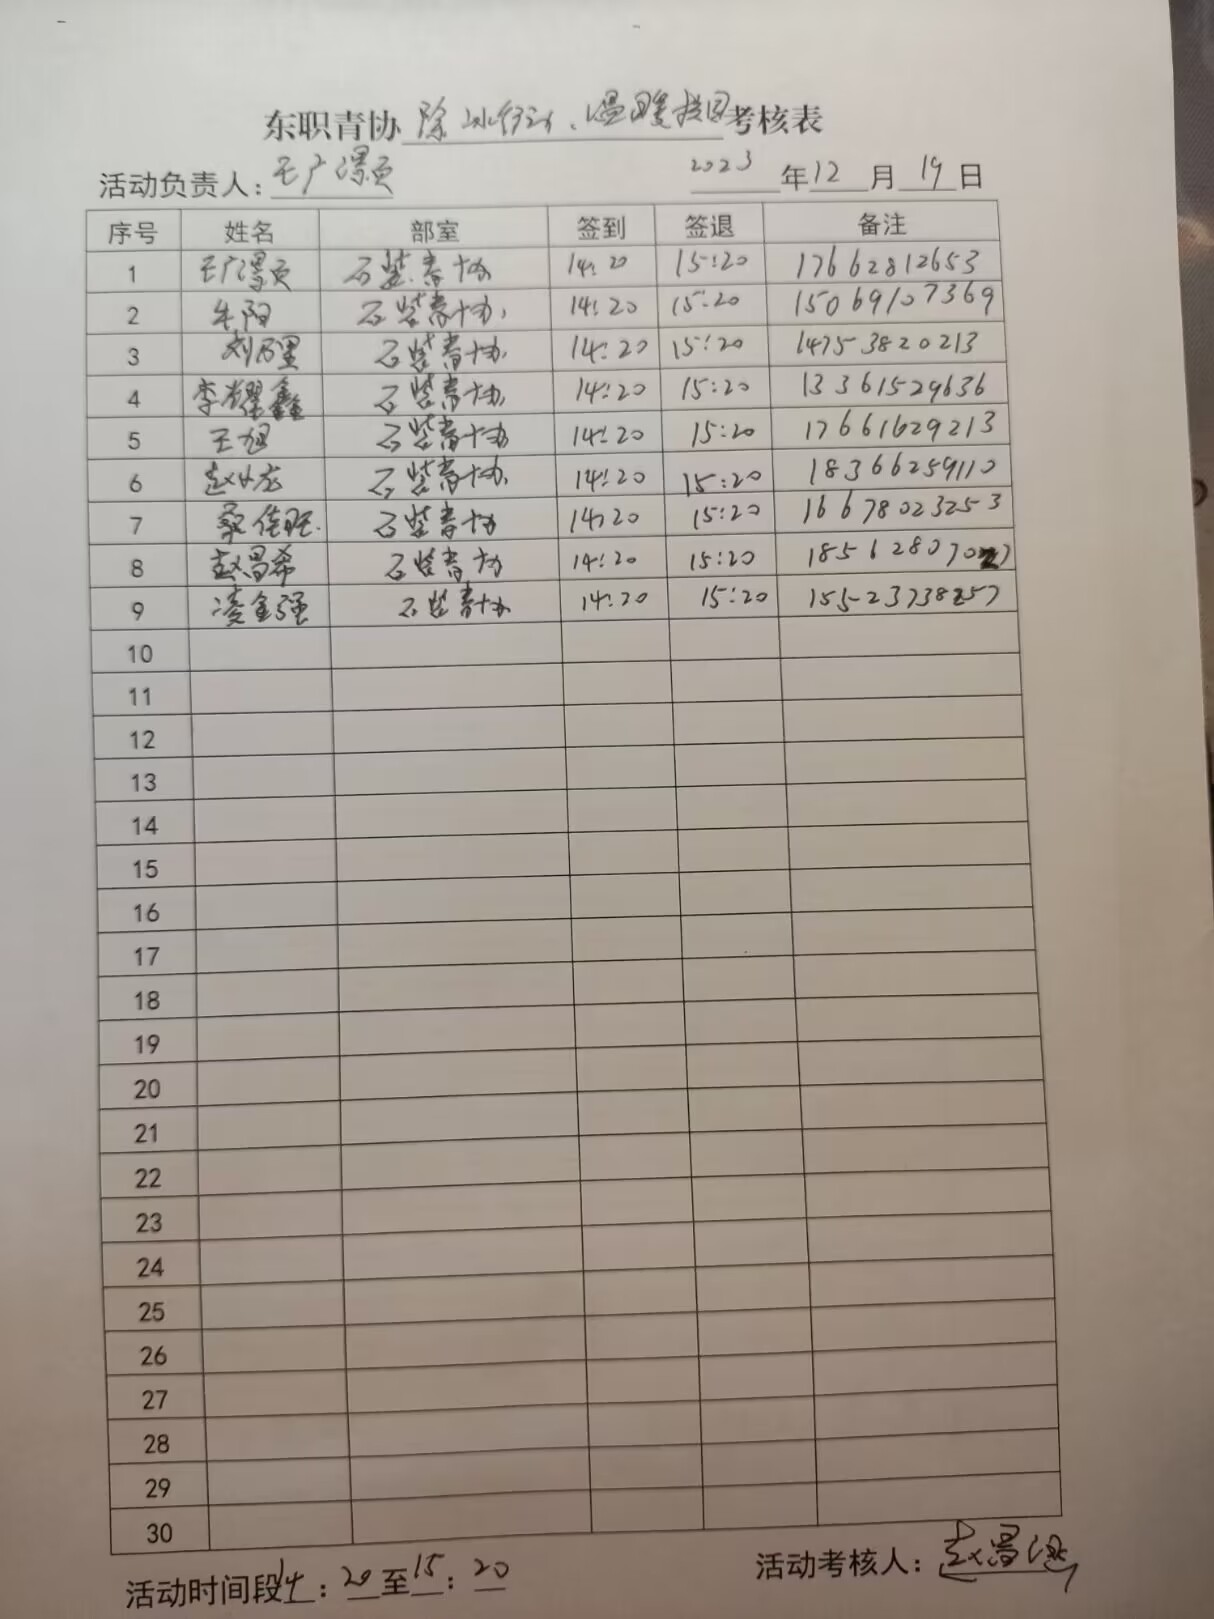 东职青协除冰行动、温暖校园考核表
活动负责人：王广灏页 2023年12月19日
序号 姓名 部室 签到 签退 备注
1 王广灏页 石埜青协 14:20 15:20 17662812653
2 牛阳 石埜青协 14:20 15:20 15069107369
3 石埜青协 14:20 15:20 14753820213
4 李耀鑫 石埜青协 14:20 15:20 13361529636
5 王旭 石埜青协 14:20 15:20 17661629213
6 石埜青协 14:20 15:20 18366259110
7 石埜青协 14:20 15:20 16678023253
8 赵昌希 石埜青协 14:20 15:20
9 凌金强 石埜青协 14:20 15:20 15523738257
10
11
12
13
14
15
16
17
18
19
20
21
22
23
24
25
26
27
28
29
30
活动时间段14：20至15：20 活动考核人：